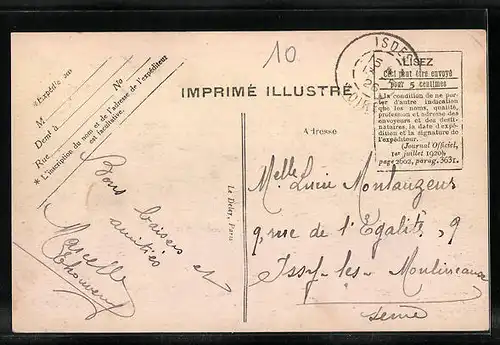 10
IMPRIMÉ ILLUSTRÉ
* Expédié par
M
No
Demt à
Rue
* L'inscription du nom et de l'adresse de l'expéditeur
est facultative.
ISDES
LOIRET
LISEZ
Ceci peut être envoyé
pour 5 centimes
à la condition de ne por-
ter d'autre indication
que les noms, qualité,
profession et adresse des
envoyeurs et des desti-
nataires, la date d'expé-
dition et la signature de
l'expéditeur.
(Journal Officiel,
1er juillet 1920,
page 2602, parag. 3631.
Adresse
Melle Luire Montauzens
9, rue de l'Egalité, 9
Issy-les-Moulineaux
Seine
Bons baisers et
amitiés
Marcelle
Le Deley, Paris